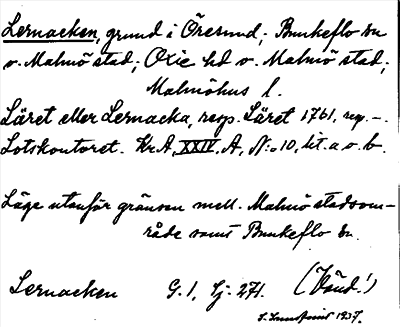 Lernacken, grund i Öresund; Bunkeflo sn
v. Malmö stad; Oxie hd v. Malmö stad;
Malmöhus l.
Läret eller Lernacka, resp. Läret 1761, reg. -.
Lotskontoret. Kr.A, XXIV. A, N:o 10, lit. a o. b.
Läge utanför gränsen mell. Malmö stadsom-
råde samt Bunkeflo sn.
Lernacken G. 1, Sj. 271. (Vänd!)
1937.